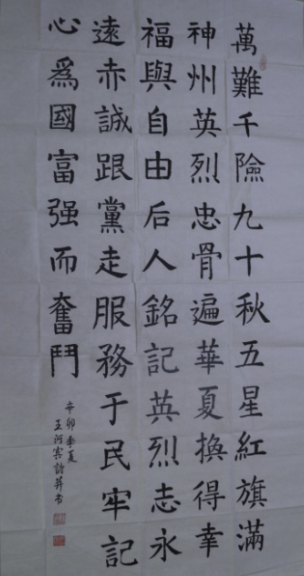 萬難千險九十秋五星紅旗滿
神州英烈忠骨遍華夏換得幸
福與自由后人銘記英烈志永
遠赤誠跟黨走服務于民牢記
心爲國富强而奮鬥
辛卯季夏
王河宾詩并书